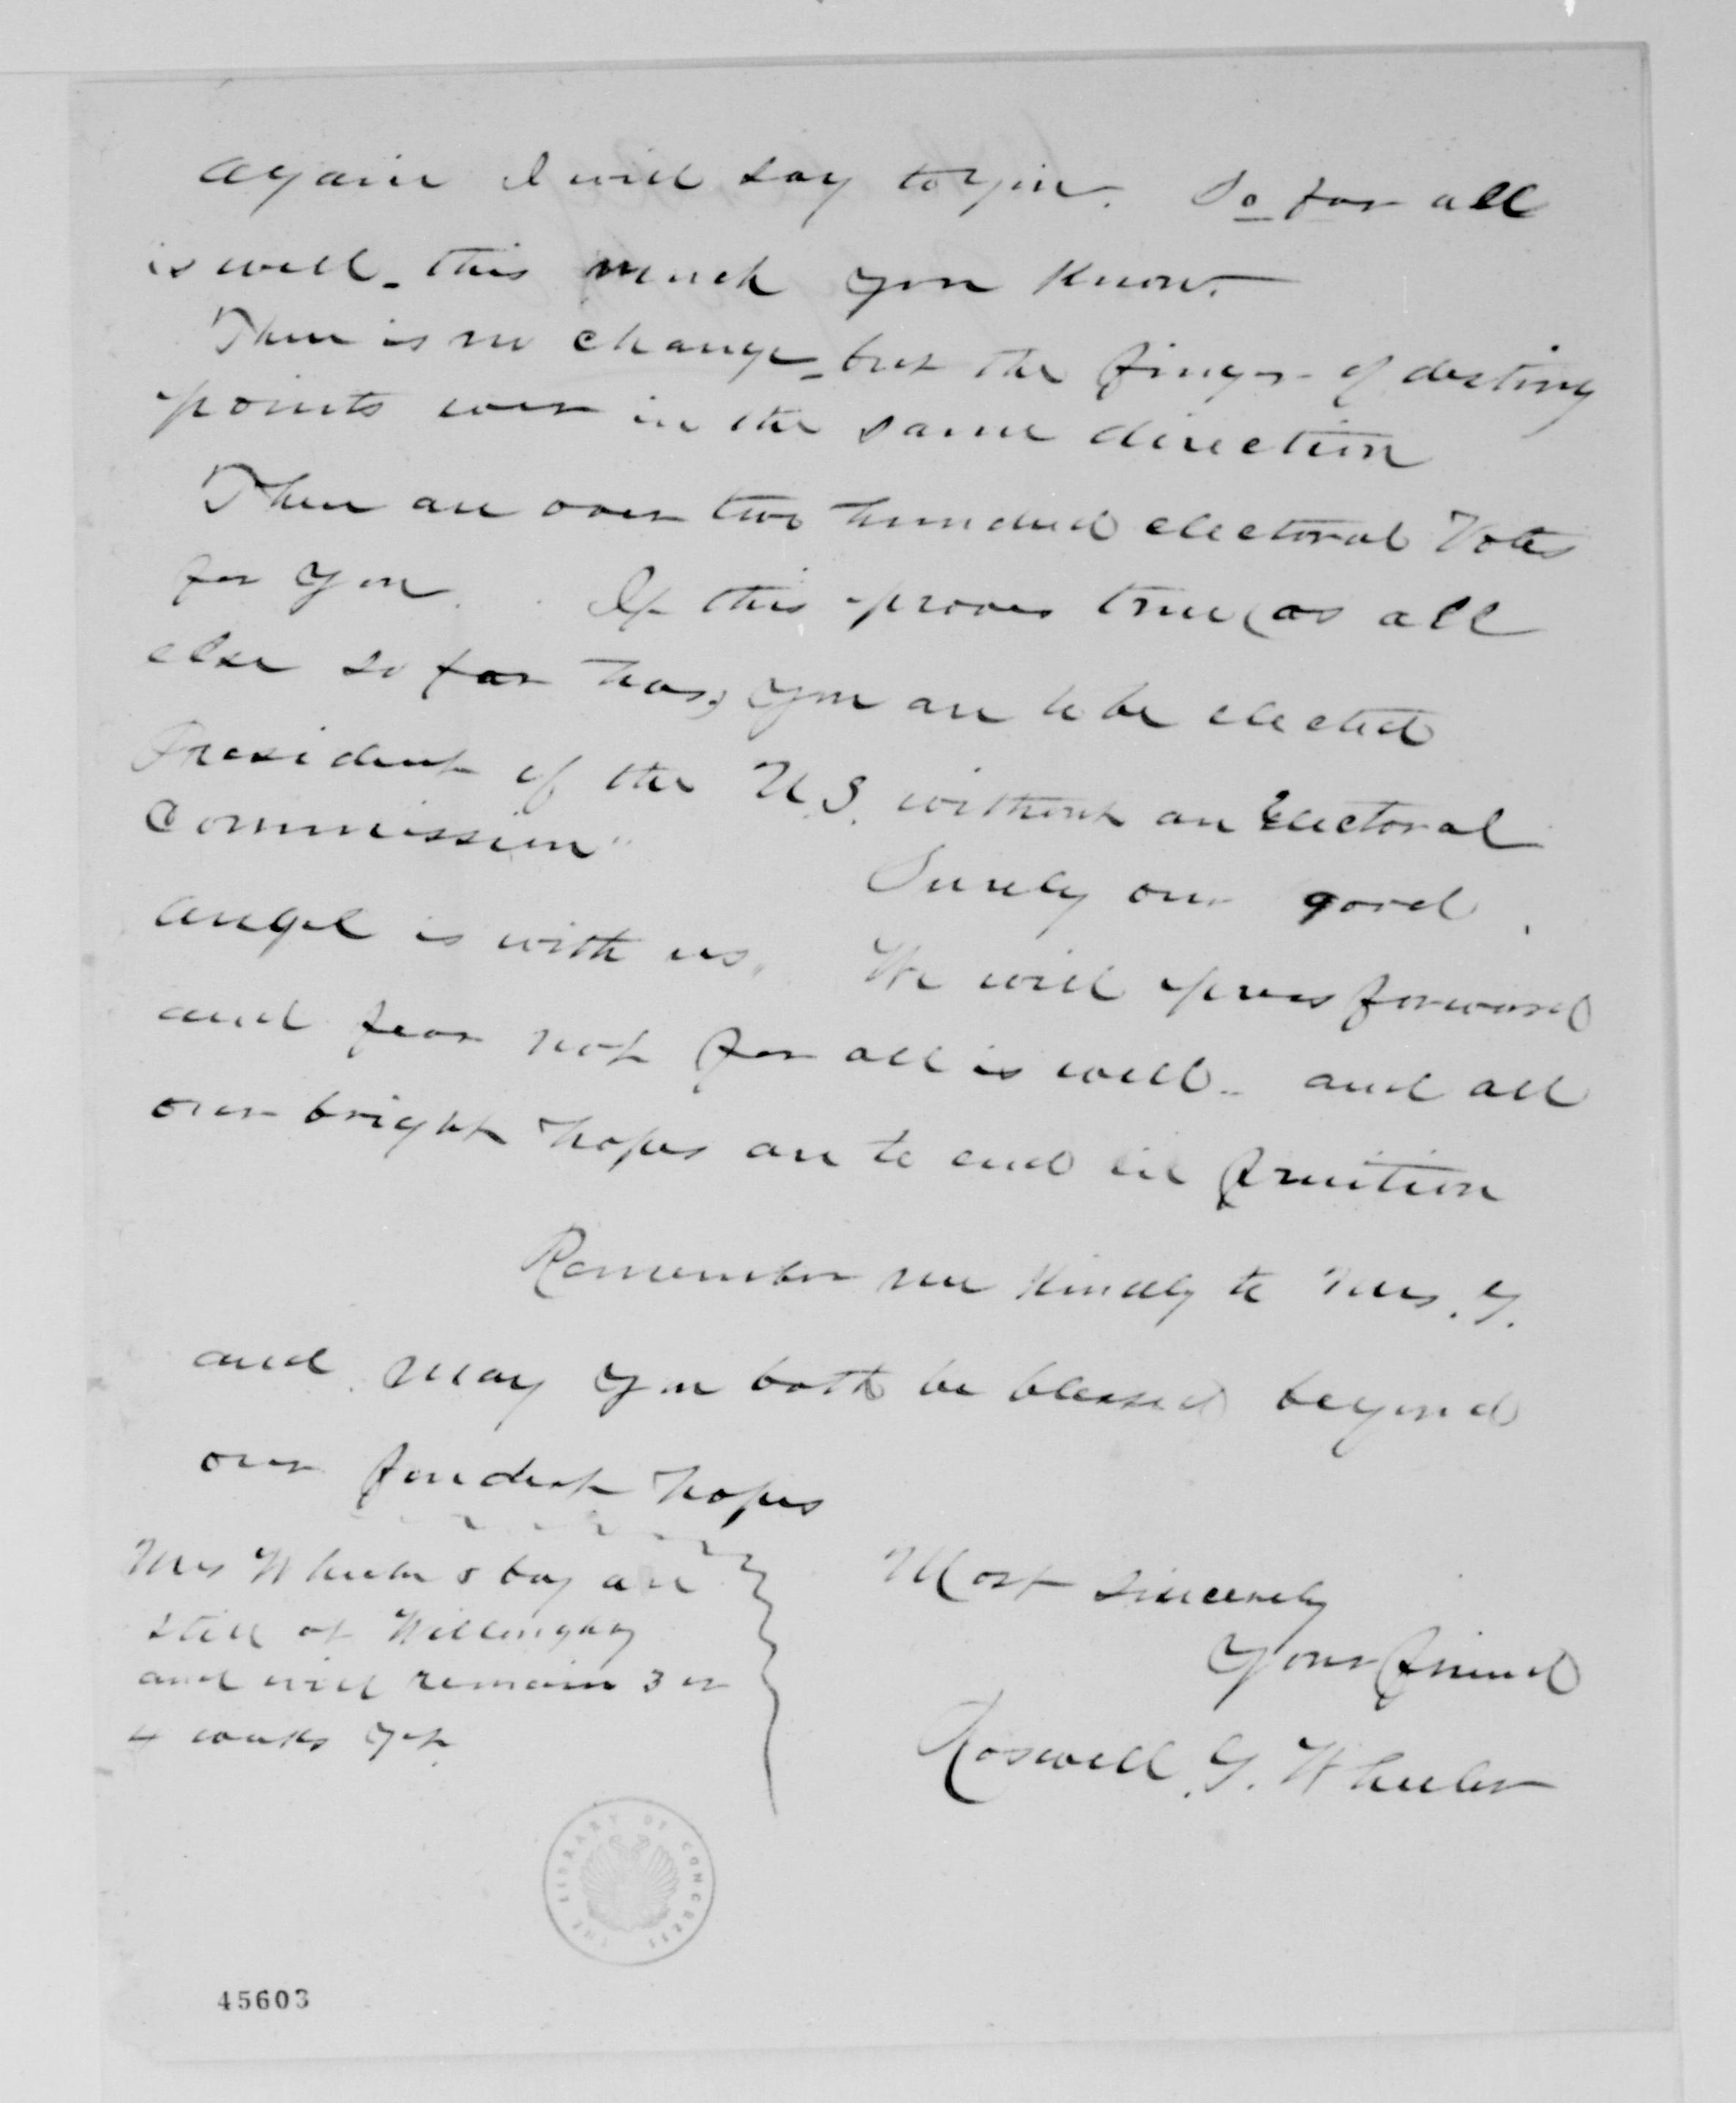 again I will say to you. So far all
is well. this much you know.
There is no change - but the finger of destiny
points ever in the same direction
There are over two hundred electoral Votes
for you. If this proves true (as all
else so far has) you are to be elected
President of the U.S. without an Electoral
Commission"
Surely our good
angel is with us. We will press forward
and fear not for all is well - and all
our bright hopes are to end in fruition
Remember me kindly to Mrs. G.
and may you both be blessed beyond
our fondest hopes
Mrs Wheeler & boy are
still at
and will remain 3 or
4 weeks yet.
Most sincerely
Your friend
Roswell G. Wheeler
THE LIBRARY OF CONGRESS
45603